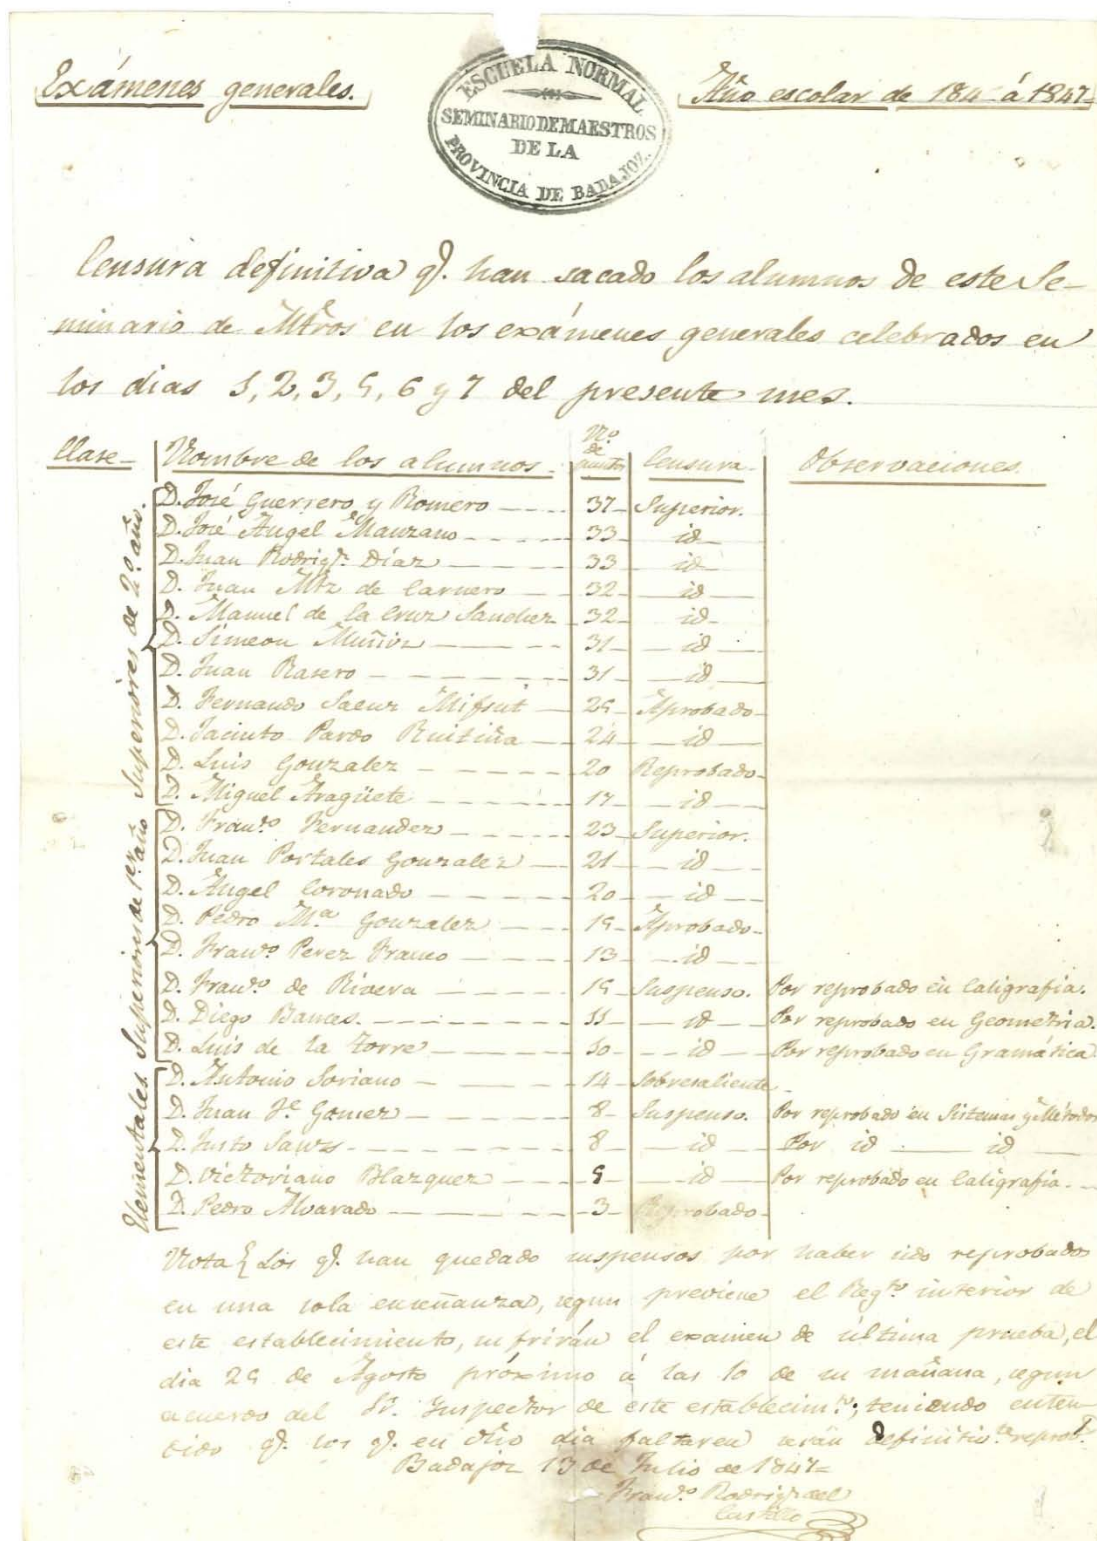 Exámenes generales.
ESCUELA NORMAL
SEMINARIO DE MAESTROS
DE LA
PROVINCIA DE BADAJOZ.
Año escolar de 184 á 1847
Censura definitiva q. han sacado los alumnos de este Se-
minario de Mtros en los exámenes generales celebrados en
los dias 1, 2, 3, 5, 6 y 7 del presente mes.
Clase Nombre de los alumnos. N.º de puntos Censura. Observaciones.
Superiores de 2.º año.
D. José Guerrero y Romero 37 Superior.
D. José Ángel Manzano 33 id
D. Juan Rodrig.z Díaz 33 id
D. Juan Mtz de Carnero 32 id
D. Manuel de la Cruz Sanchez 32 id
D. Simeon Muñiz 31 id
D. Juan Rasero 31 id
D. Fernando Saenz Mifsut 25 Aprobado
D. Jacinto Pardo 24 id
D. Luis Gonzalez 20 Reprobado
D. Miguel Aragüete 17 id
Superiores de 1.er año
D. Fran.co Fernandez 23 Superior.
D. Juan Portales Gonzalez 21 id
D. Ángel Coronado 20 id
D. Pedro M.a Gonzalez 15 Aprobado
D. Fran.co Perez Franco 13 id
D. Fran.co de Rivera 15 Suspenso. Por reprobado en Caligrafia.
D. Diego Bances. 11 id Por reprobado en Geometria.
D. Luis de la Torre 10 id Por reprobado en Gramática
Elementales
D. Antonio Soriano 14 Sobresaliente
D. Juan J.e Gomez 8 Suspenso. Por reprobado en Sistemas y Métodos
D. Justo Sanz 8 id Por id id
D. Victoriano Blazquez 5 id Por reprobado en Caligrafia.
D. Pedro Alvarado 3 Reprobado
Nota { Los q. han quedado suspensos por haber sido reprobados
en una sola enseñanza, segun previene el Reg.to interior de
este establecimiento, sufrirán el examen de última prueba, el
dia 25 de Agosto próximo á las 10 de su mañana, segun
acuerdo del Sr. Inspector de este establecim.to; teniendo enten-
dido q. los q. en dho dia faltaren serán definitiv.te reprob.s
Badajoz 13 de Julio de 1847=
Fran.co Rodrig.z del
Castillo